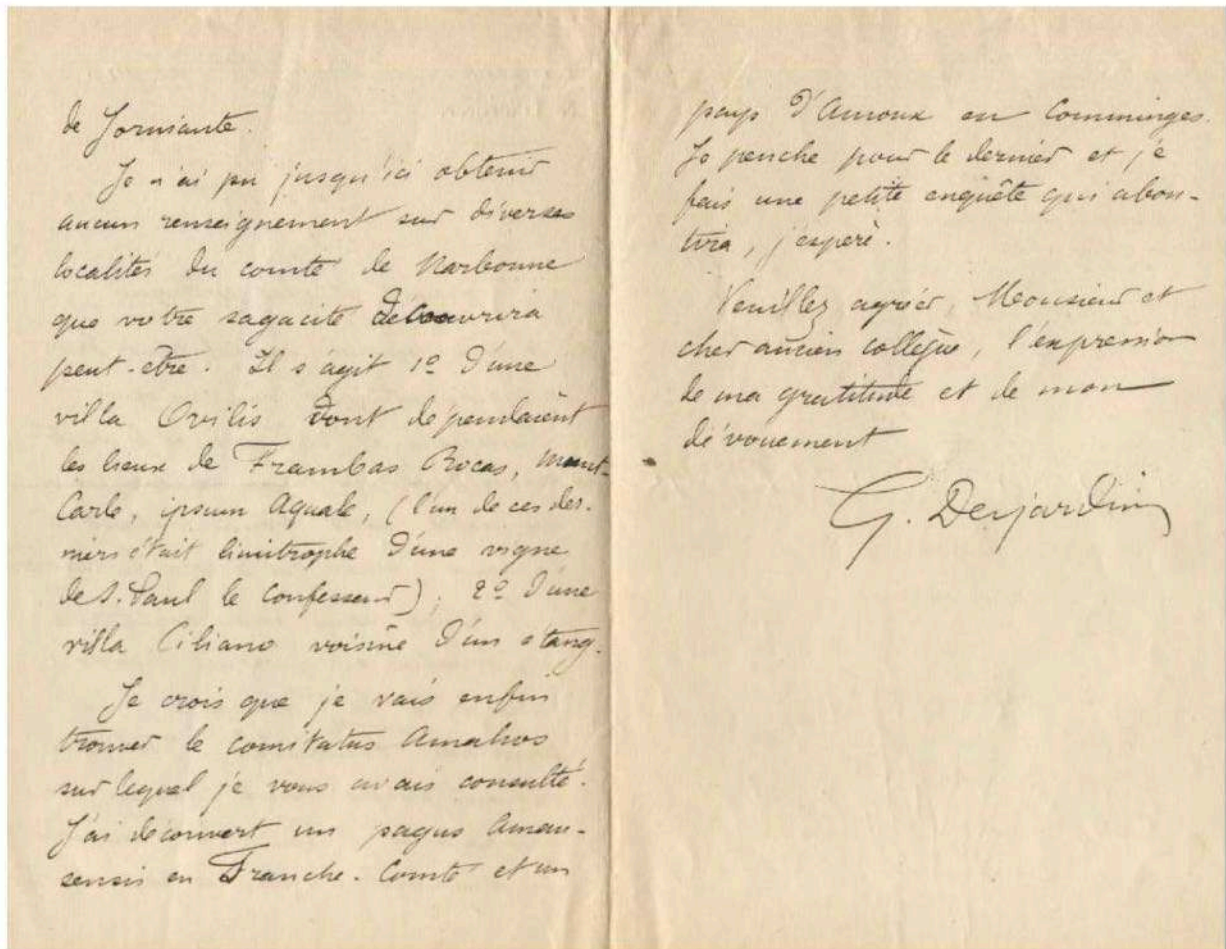 de Jorniante.
Je n'ai pu jusqu'ici obtenir
aucun renseignement sur diverses
localités du comté de Narbonne
que votre sagacité découvrira
peut-être. Il s'agit 1º d'une
villa Ovilis dont dépendaient
les lieux de Frambas Rocas, Mont-
Carle, ipsum Aquale, (l'un de ces der-
niers était limitrophe d'une vigne
de S. Paul le Confesseur); 2º d'une
villa Ciliano voisine d'un étang.
Je crois que je vais enfin
trouver le comitatus Amahos
sur lequel je vous avais consulté.
J'ai découvert un pagus Amau-
sensis en Franche-Comté et un
pays d'Amoux en Comminges.
Je penche pour le dernier et je
fais une petite enquête qui abou-
tira, j'espère.
Veuillez agréer, Monsieur et
cher ancien collègue, l'expression
de ma gratitude et de mon
dévouement
G. Desjardins